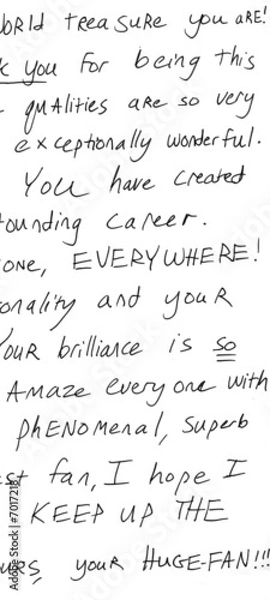 WORLD TREASURE you ARE!
you for being this
qualities are so very
exceptionally wonderful.
You have created
career.
EVERYWHERE!
and your
your brilliance is so
Amaze everyone with
phenomenal, superb
fan, I hope I
KEEP UP THE
your HUGE-FAN!!!